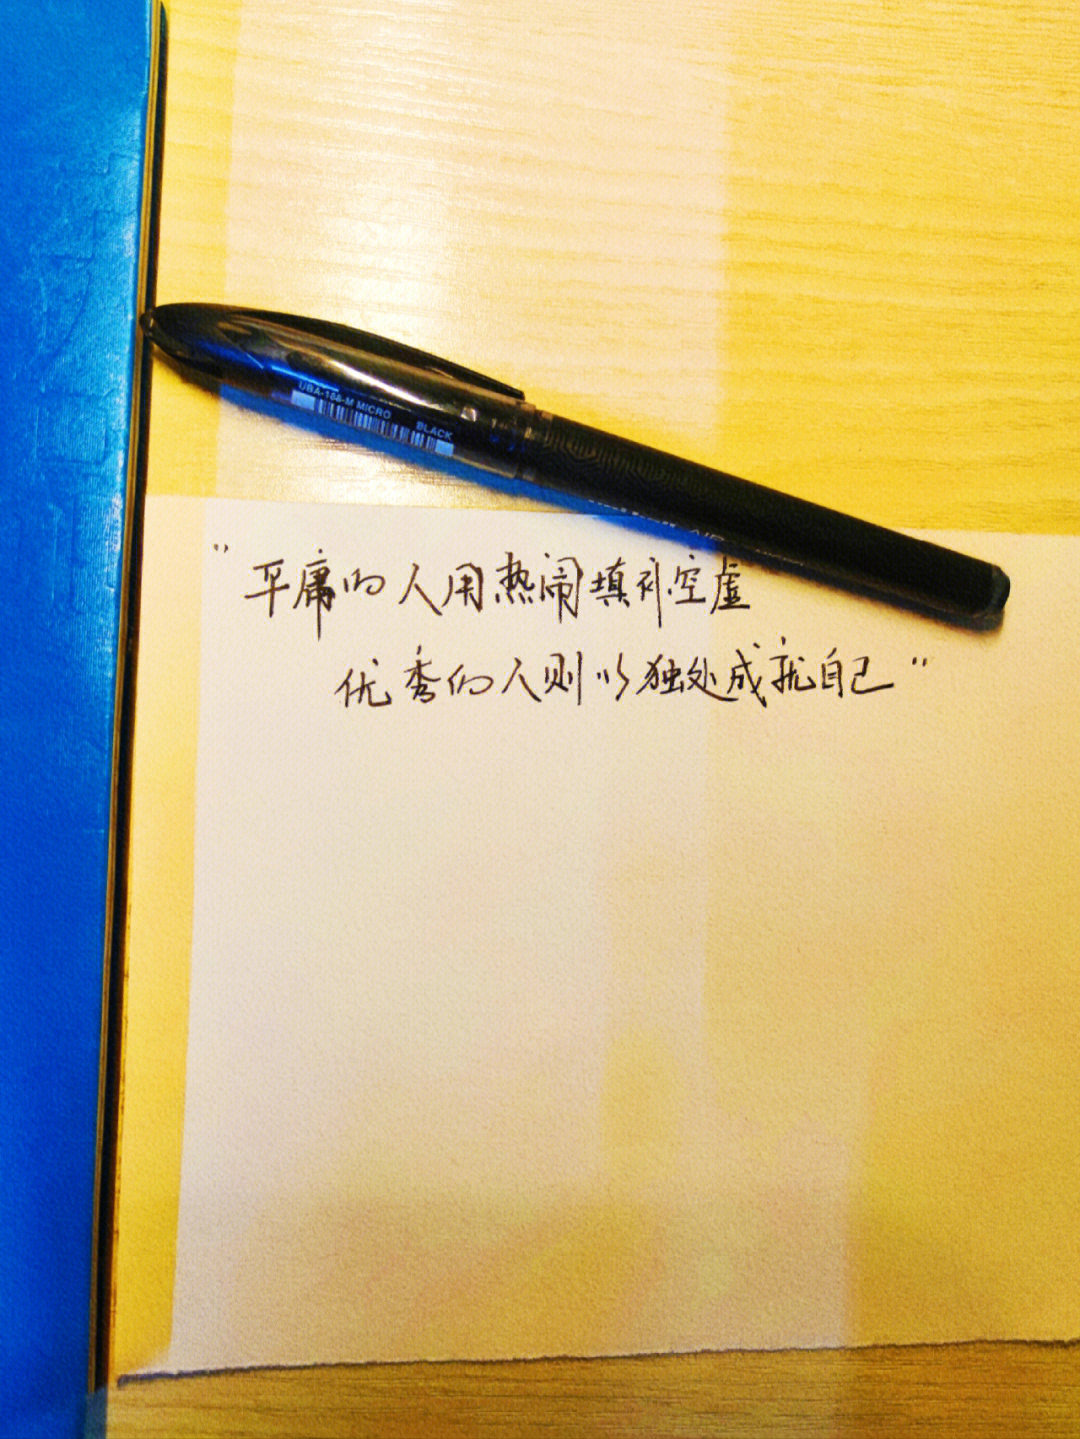 UBA-188-M MICRO BLACK
"平庸的人用热闹填补空虚
优秀的人则以独处成就自己"